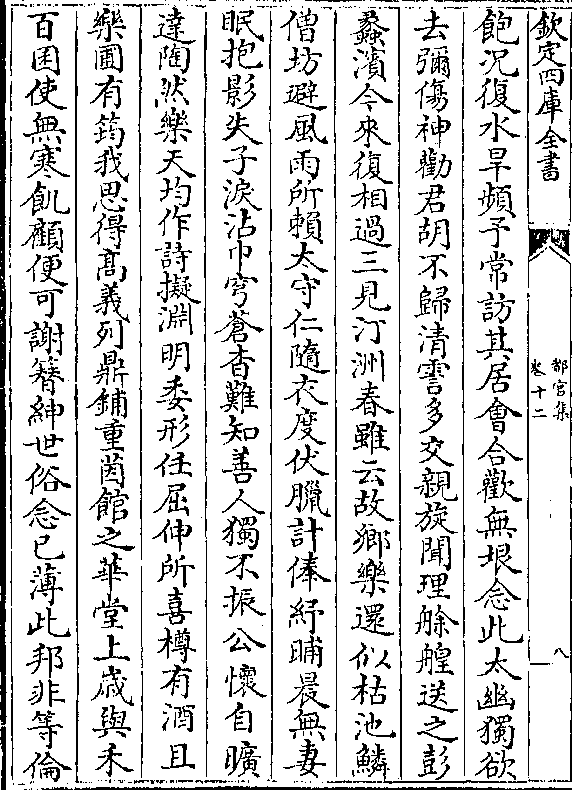 欽定四庫全書
都官集
卷十二
八
飽況復水旱頻予常訪其居會合歡無垠念此太幽獨欲
去彌傷神勸君胡不歸清霅多交親旋聞理艅艎送之彭
蠡濱今來復相過三見汀洲春雖云故鄉樂還似枯池鱗
僧坊避風雨所賴太守仁隨衣度伏臘計俸紓晡晨無妻
眠抱影失子淚沾巾穹蒼杳難知善人獨不振公懷自曠
達陶然樂天均作詩擬淵明委形任屈伸所喜樽有酒且
樂圃有筠我思得髙義列鼎鋪重茵館之華堂上歳與禾
百囷使無寒飢顧便可謝簪紳世俗念已薄此邦非等倫